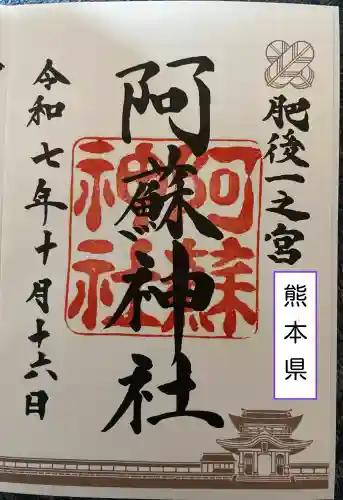 肥後一之宮
熊本県
阿蘇神社
阿蘇
神社
令和七年十月十六日